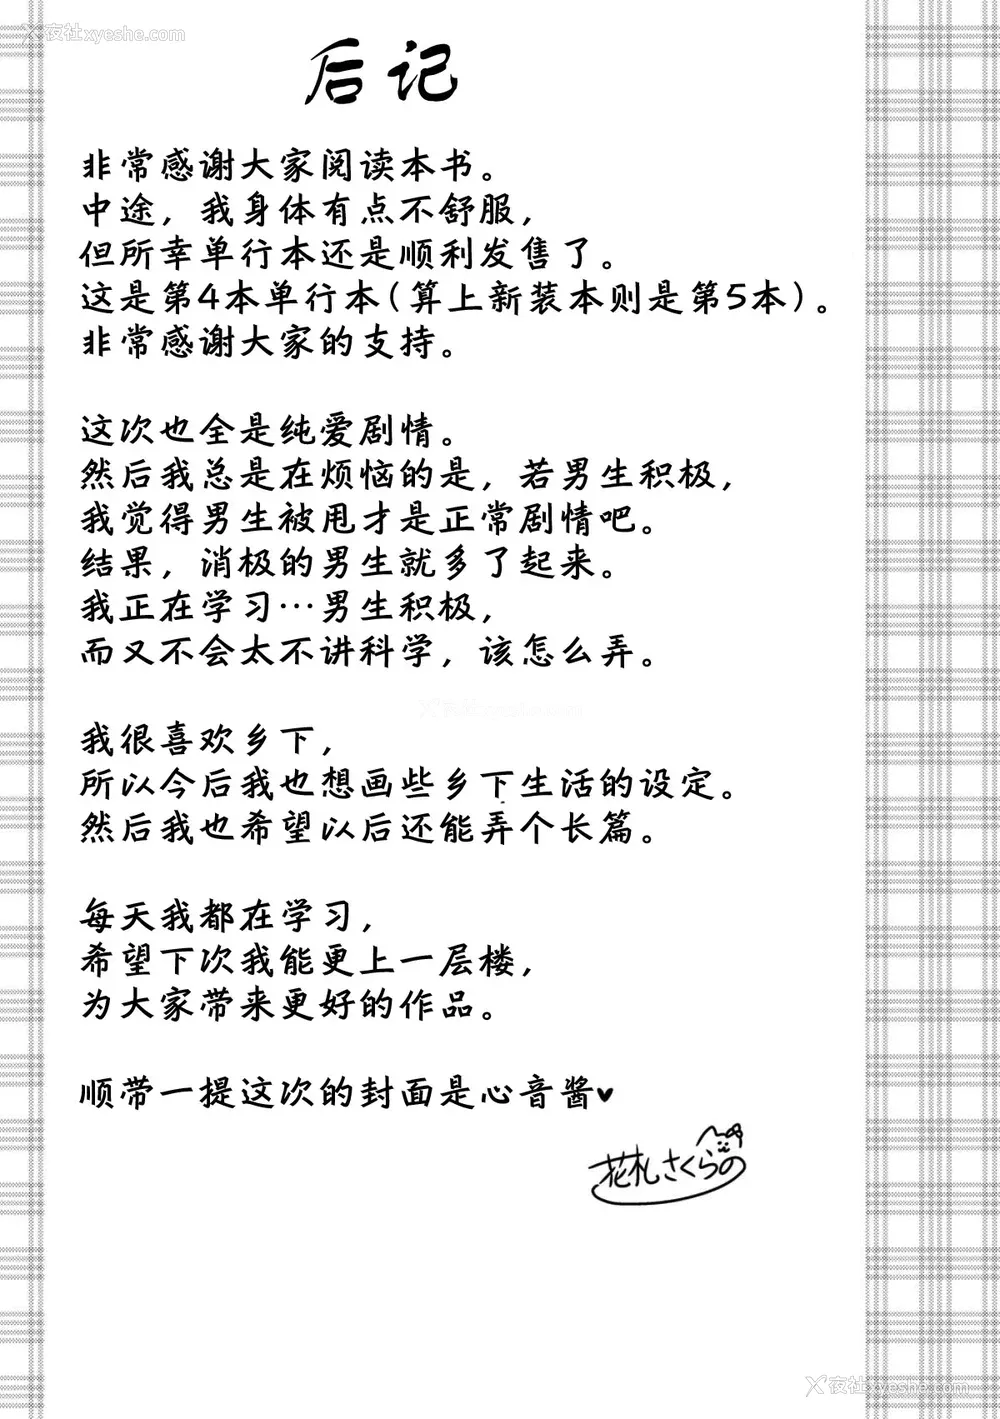 夜社xyeshe.com
后记
非常感谢大家阅读本书。
中途，我身体有点不舒服，
但所幸单行本还是顺利发售了。
这是第4本单行本（算上新装本则是第5本）。
非常感谢大家的支持。
这次也全是纯爱剧情。
然后我总是在烦恼的是，若男生积极，
我觉得男生被甩才是正常剧情吧。
结果，消极的男生就多了起来。
我正在学习…男生积极，
而又不会太不讲科学，该怎么弄。
夜社xyeshe.com
我很喜欢乡下，
所以今后我也想画些乡下生活的设定。
然后我也希望以后还能弄个长篇。
每天我都在学习，
希望下次我能更上一层楼，
为大家带来更好的作品。
顺带一提这次的封面是心音酱♥
花札さくらの
夜社xyeshe.com